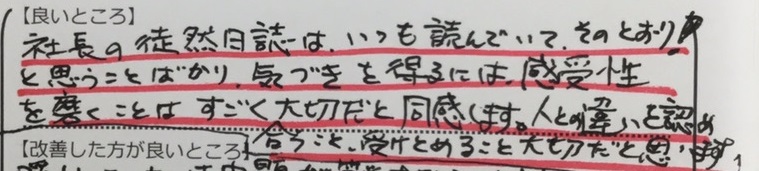 【良いところ】
社長の徒然日誌は、いつも読んでいて、そのとおり
と思うことばかり、気づきを得るには、感受性
を磨くことはすごく大切だと同感します。人との違いを認め
合うこと、受けとめること大切だと思います。
【改善した方が良いところ】